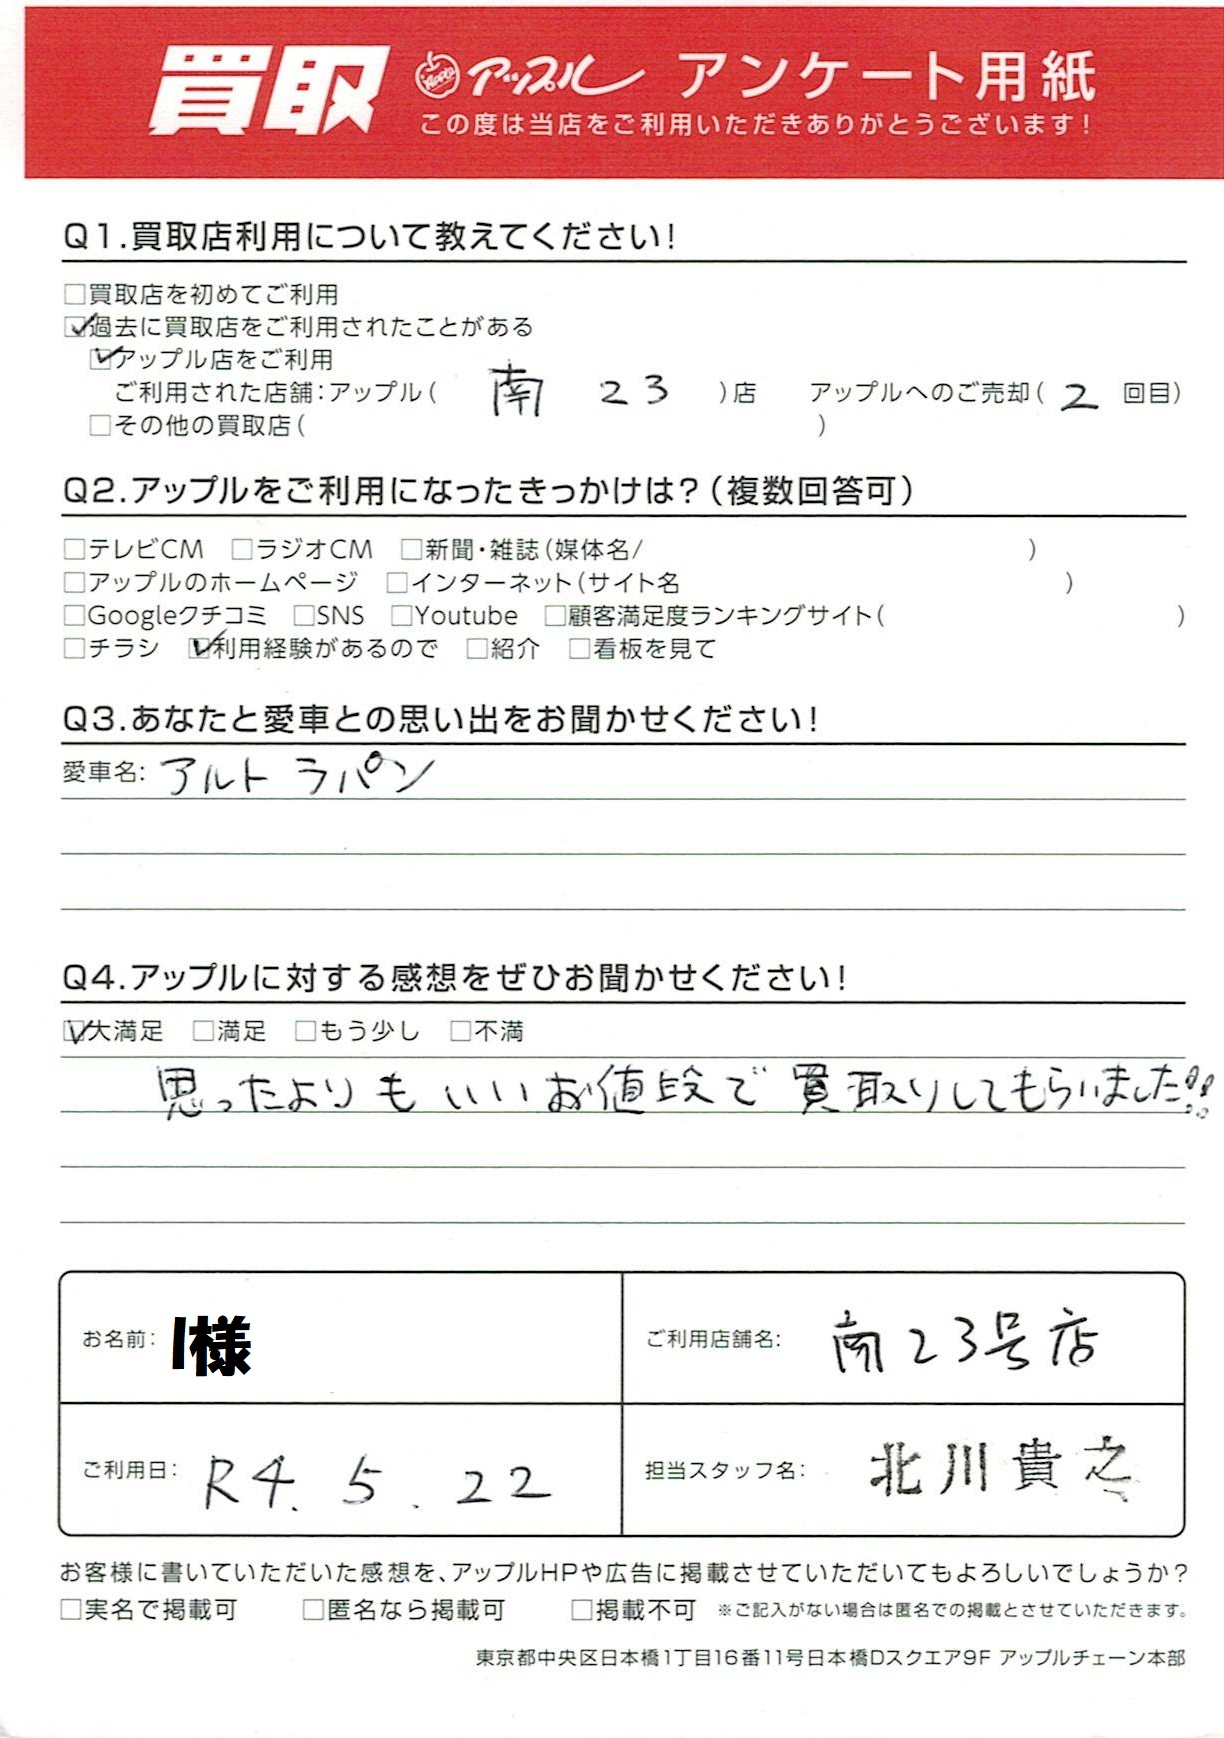 買取 Apple アップル アンケート用紙
この度は当店をご利用いただきありがとうございます!
Q1.買取店利用について教えてください!
□買取店を初めてご利用
☑過去に買取店をご利用されたことがある
☑アップル店をご利用
ご利用された店舗:アップル( 南 23 )店 アップルへのご売却( 2 回目)
□その他の買取店( )
Q2.アップルをご利用になったきっかけは?(複数回答可)
□テレビCM □ラジオCM □新聞・雑誌(媒体名/ )
□アップルのホームページ □インターネット(サイト名 )
□Googleクチコミ □SNS □Youtube □顧客満足度ランキングサイト( )
□チラシ ☑利用経験があるので □紹介 □看板を見て
Q3.あなたと愛車との思い出をお聞かせください!
愛車名: アルト ラパン
Q4.アップルに対する感想をぜひお聞かせください!
☑大満足 □満足 □もう少し □不満
思ったよりも いい お値段で 買取りしてもらいました!!
お名前: I様 ご利用店舗名: 南23号店
ご利用日: R4. 5. 22 担当スタッフ名: 北川貴之
お客様に書いていただいた感想を、アップルHPや広告に掲載させていただいてもよろしいでしょうか?
□実名で掲載可 □匿名なら掲載可 □掲載不可 ※ご記入がない場合は匿名での掲載とさせていただきます。
東京都中央区日本橋1丁目16番11号日本橋Dスクエア9F アップルチェーン本部